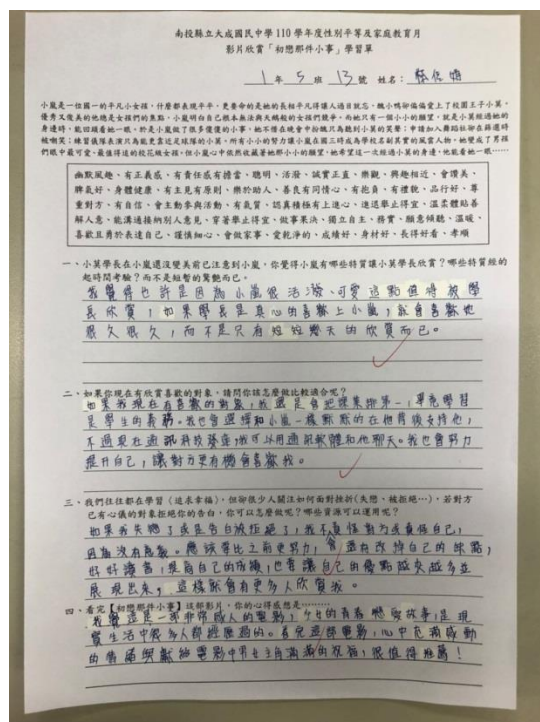 南投縣立大成國民中學110學年度性別平等及家庭教育月
影片欣賞「初戀那件小事」學習單
1年5班13號 姓名：
小嵐是一位國一的平凡小女孩，什麼都表現平平，更要命的是她的長相平凡得讓人過目就忘。醜小鴨卻偏偏愛上了校園王子小莫，
優秀又俊美的他總是女孩們的焦點。小嵐明白自己根本無法與大觸校的女孩們競爭，而她只有一個小小的願望，就是小莫經過她的
身邊時，能回頭看她一眼。於是小嵐做了很多傻傻的小事，她不惜在晚會中扮醜只為聽到小莫的笑聲；申請加入舞蹈社卻在篩選時
被嘲笑；練習儀隊表演只為能更靠近足球隊的小莫。所有小小的努力讓小嵐在國三時成為學校名副其實的風雲人物。她變成了男孩
們眼中最可愛、最值得追的校花級女孩。但小嵐心中依然收藏著她那小小的願望，她希望這一次經過小莫的身邊，他能看她一眼……
幽默風趣、有正義感、有責任感有擔當、聰明、活潑、誠實正直、樂觀、興趣相近、會讚美、
脾氣好、身體健康、有主見有原則、樂於助人、善良有同情心、有抱負、有禮貌、品行好、尊
重對方、有自信、會主動參與活動、有氣質、認真積極有上進心、進退舉止得宜、溫柔體貼善
解人意、能溝通接納別人意見、穿著舉止得宜、做事果決、獨立自主、務實、願意傾聽、溫暖、
喜歡且勇於表達自己、謹慎細心、會做家事、愛乾淨的、成績好、身材好、長得好看、孝順
一、小莫學長在小嵐還沒變美前已注意到小嵐，你覺得小嵐有哪些特質讓小莫學長欣賞？哪些特質經的
起時間考驗？而不是短暫的驚艷而已。
我覺得也許是因為小嵐很活潑、可愛這點值得被學
長欣賞，如果學長是真心的喜歡上小嵐，就會喜歡她
很久很久，而不是只有短短幾天的欣賞而已。
二、如果你現在有欣賞喜歡的對象，請問你該怎麼做比較適合呢？
如果我現在有喜歡的對象，我還是會把課業排第一，畢竟學習
是學生的義務。我也會選擇和小嵐一樣默默的在他背後支持他，
不過現在通訊科技發達，我可以用通訊軟體和他聊天。我也會努力
提升自己，讓對方更有機會喜歡我。
三、我們往往都在學習（追求幸福），但卻很少人關注如何面對挫折(失戀、被拒絕…)，若對方
已有心儀的對象拒絕你的告白，你可以怎麼做呢？哪些資源可以運用呢？
如果我失戀了或是告白被拒絕了，我不責怪對方或責怪自己，
因為沒有意義。應該要比之前更努力，會還有改掉自己的缺點，
好好讀書，提前自己的成績，也有讓自己的優點越來越多並
展現出來，這樣就會有更多人欣賞我。
四、看完【初戀那件小事】該部影片，你的心得感想是………
我覺這是一部非常感人的電影，少女的青春戀愛故事，是現
實生活中很多人都經歷過的。看完這部電影，心中充滿感動
的情緒與獻給電影中男女主角滿滿的祝福，很值得推薦！